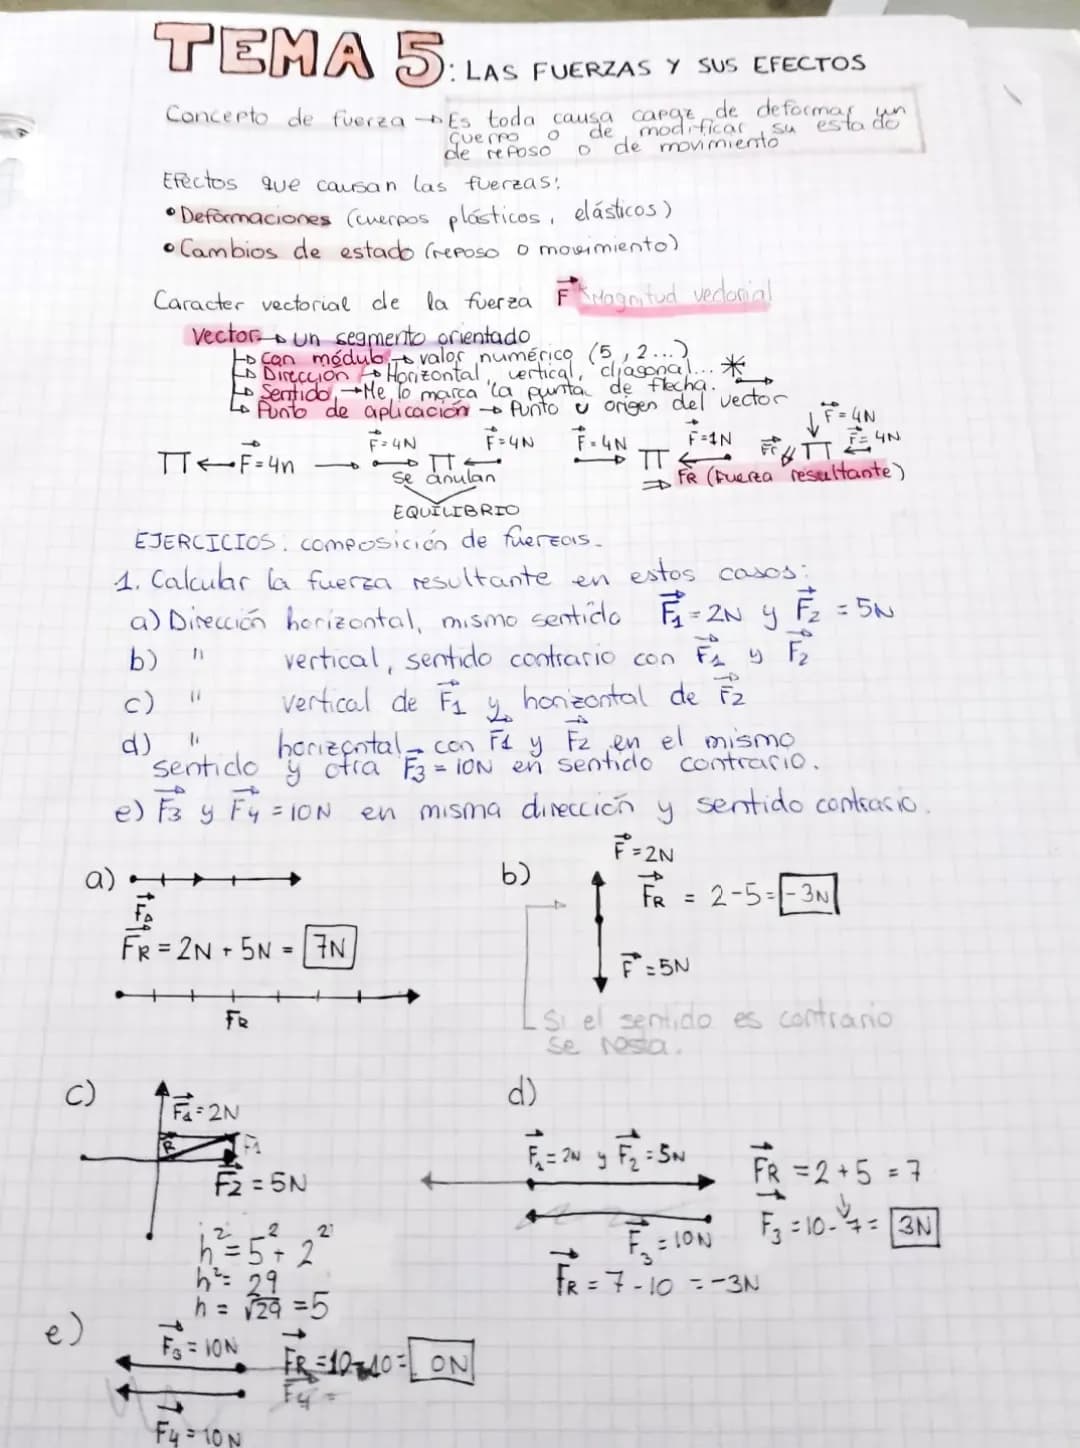 TEMA 5: LAS FUERZAS Y SUS EFECTOS
Concepto de fuerza → Es toda causa capaz de deformar un
cuerpo o de modificar su estado
de reposo o de movimiento
Efectos que causan las fuerzas:
• Deformaciones (cuerpos plásticos, elásticos)
• Cambios de estado (reposo o movimiento)
Caracter vectorial de la fuerza F Magnitud vectorial
Vector → un segmento orientado
Con módulo → valor numérico (5, 2...)
Dirección → Horizontal, vertical, diagonal...
Sentido → Me lo marca la punta de flecha.
Punto de aplicación → Punto u origen del vector
F=4N
F=4n F=4N F=4N F=4N F=1N F=4N
Se anulan FR (Fuerza resultante)
EQUILIBRIO
EJERCICIOS: composición de fuerzas.
1. Calcular la fuerza resultante en estos casos:
a) Dirección horizontal, mismo sentido F1 = 2N y F2 = 5N
b) " vertical, sentido contrario con F1 y F2
c) " vertical de F1 y horizontal de F2
d) " horizontal con F1 y F2 en el mismo
sentido y otra F3 = 10N en sentido contrario.
e) F3 y F4 = 10N en misma dirección y sentido contrario.
a)
FR = 2N + 5N = 7N
FR
b)
F = 2N
FR = 2-5 = -3N
F = 5N
Si el sentido es contrario
se resta.
c)
F1 = 2N
R F1
F2 = 5N
h² = 5² + 2²
h² = 29
h = √29 = 5
d)
F1 = 2N y F2 = 5N
FR = 2 + 5 = 7
F3 = 10 - 7 = 3N
F3 = 10N
FR = 7 - 10 = -3N
e)
F3 = 10N
FR = 10-10 = 0N
F4 =
F4 = 10N